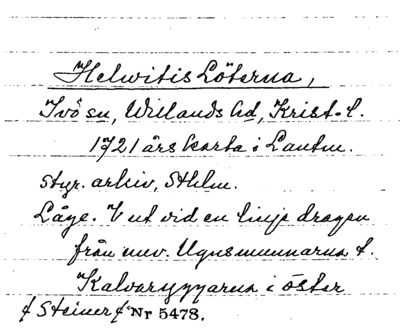 Helwitis Löterna,
Ivö sn, Willands hd, Krist. l.
1721 års karta i Lantm.
styr. arkiv, Sthlm.
Läge. V ut vid en linje dragen
från mv. Ugnsmunnarna t.
Kalvaryggarna i öster
Steiner Nr 5478.